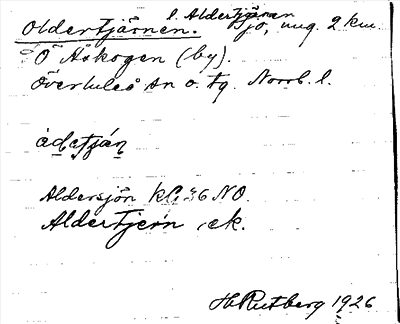 Oldertjärnen. l. Aldertjärnen Sjö, ung. 2 km.
Ö Åskogen (by).
Överluleå sn o. tg. Norrb. l.
Aldersjön kbl. 36 NO.
Aldertjern, ek.
H. Rutberg 1926